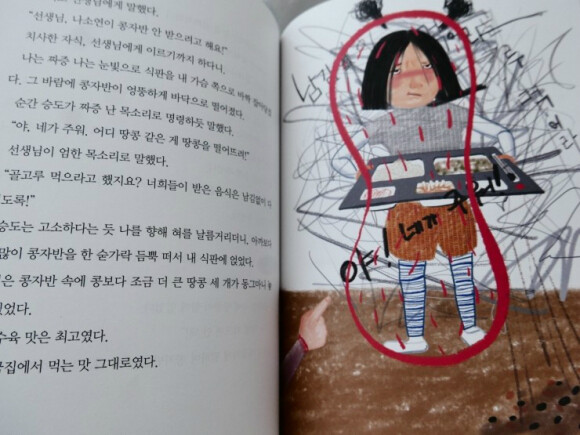 선생님에게 말했다.
"선생님, 나소연이 콩자반 안 받으려고 해요!"
치사한 자식, 선생님에게 이르기까지 하다니.
나는 짜증 나는 눈빛으로 식판을 내 가슴 쪽으로 바짝
다. 그 바람에 콩자반이 엉뚱하게 바닥으로 떨어졌다.
순간 승도가 짜증 난 목소리로 명령하듯 말했다.
"야, 네가 주워. 어디 땅콩 같은 게 땅콩을 떨어뜨려!"
선생님이 엄한 목소리로 말했다.
"골고루 먹으라고 했지요? 너희들이 받은 음식은 남김없이 다
도록!"
승도는 고소하다는 듯 나를 향해 혀를 날름거리더니, 아까보다
많이 콩자반을 한 숟가락 듬뿍 떠서 내 식판에 얹었다.
은 콩자반 속에 콩보다 조금 더 큰 땅콩 세 개가 동그마니
있었다.
수육 맛은 최고였다.
집에서 먹는 맛 그대로였다.
야! 네가 주워!